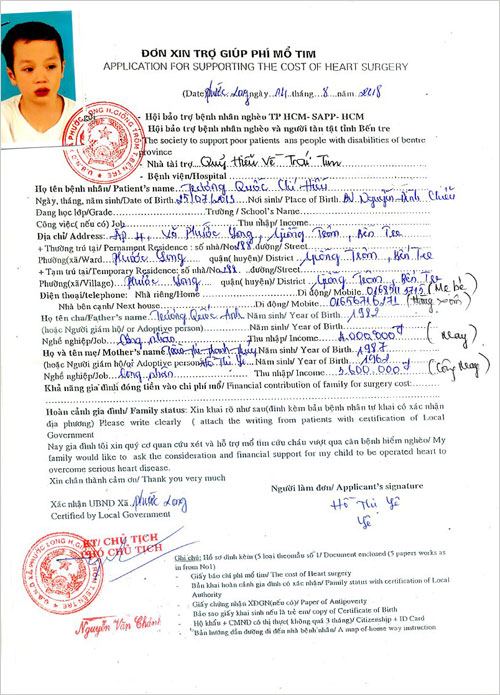 ĐƠN XIN TRỢ GIÚP PHÍ MỔ TIM
APPLICATION FOR SUPPORTING THE COST OF HEART SURGERY
(Date) Phước Long ngày 14 tháng 8 năm 2018
- Hội bảo trợ bệnh nhân nghèo TP HCM- SAPP- HCM
Hội bảo trợ bệnh nhân nghèo và người tàn tật tỉnh Bến tre
The society to support poor patients ans people with disabilities of bentre
province
- Nhà tài trợ Quỹ Hiểu Về Trái Tim
- Bệnh viện/Hospital
Họ tên bệnh nhân/ Patient's name Trương Quốc Chí Hiếu
Ngày, tháng, năm sinh/Date of Birth 25/07/2013 Nơi sinh/ Place of Birth BV Nguyễn Đình Chiểu
Đang học lớp/Grade Trường / School's Name
Công việc( nếu có) Job Thu nhập/ Income
Địa chỉ/ Address: Phước Long, Giồng Trôm, Bến Tre
+ Thường trú tại/ Pemamnpt Residence: số nhà/No 188 đường/ Street
Phường(xã)/Ward Phước Long quận( huyện)/ District Giồng Trôm, Bến Tre
+ Tạm trú tại/Temporary Residence: số nhà/No 188 đường/Street
Phường(xã)/Village) Phước Long quận( huyện)/ District Giồng Trôm, Bến Tre
Điện thoại/telephone: Nhà riêng/Home Di động/ Mobile (Mẹ bé)
Nhà bên cạnh/ Next house Di động/ Mobile
Họ tên cha/Father's name Trương Quốc Anh Năm sinh/ Year of Birth 1982
(hoặc Người giám hộ/ or Adoptive person) Năm sinh/ Year of Birth
Nghề nghiệp/Job Công nhân Thu nhập/ Income 4.000.000đ (May)
Họ và tên mẹ/ Mother's name Năm sinh/ Year of Birth 1987
(hoặc Người giám hộ/ or Adoptive person) Hồ Thị Yê Năm sinh/ Year of Birth 1962
Nghề nghiệp/Job Công nhân Thu nhập/ Income 3.600.000đ
Khả năng gia đình đóng tiền vào chi phí mổ/ Financial contribution of family for surgery cost:
Hoàn cảnh gia đình/ Family status: Xin khai rõ như sau(đính kèm bản bệnh nhân tự khai có xác nhận
địa phương) Please write clearly ( attach the writing from patients with certification of Local
Government
Nay gia đình tôi xin quý cơ quan cứu xét và hỗ trợ mổ tim cứu cháu vượt qua căn bệnh hiểm nghèo/ My
family would like to ask the consideration and financial support for my child to be operated heart to
overcome serious heart disease.
Xin chân thành cảm ơn/ Thank you very much
Người làm đơn/ Applicant's signature
Hồ Thị Yê
Yê
Xác nhận UBND Xã Phước Long
Certified by Local Government
KT/ CHỦ TỊCH
PHÓ CHỦ TỊCH
Nguyễn Văn Chánh
Ghi chú: Hồ sơ đính kèm (5 loại theo mẫu số 1/ Document enclosed (5 papers works as
in from No1)
- Giấy báo chi phí mổ tim/ The cost of Heart surgery
- Bản khai hoàn cảnh gia đình có xác nhận/ Family status with certification of Local
Authority
- Giấy chứng nhận XĐGN(nếu có)/ Paper of Antipoverty
- Bảo sao giấy khai sinh nếu là trẻ em/ copy of Certificate of Birth
- Hộ khẩu + CMND có thị thực( không quá 3 tháng)/ Citizenship + ID Card
- Bản hướng dẫn đường đi đến nhà bệnh nhân/ A map of home way instruction